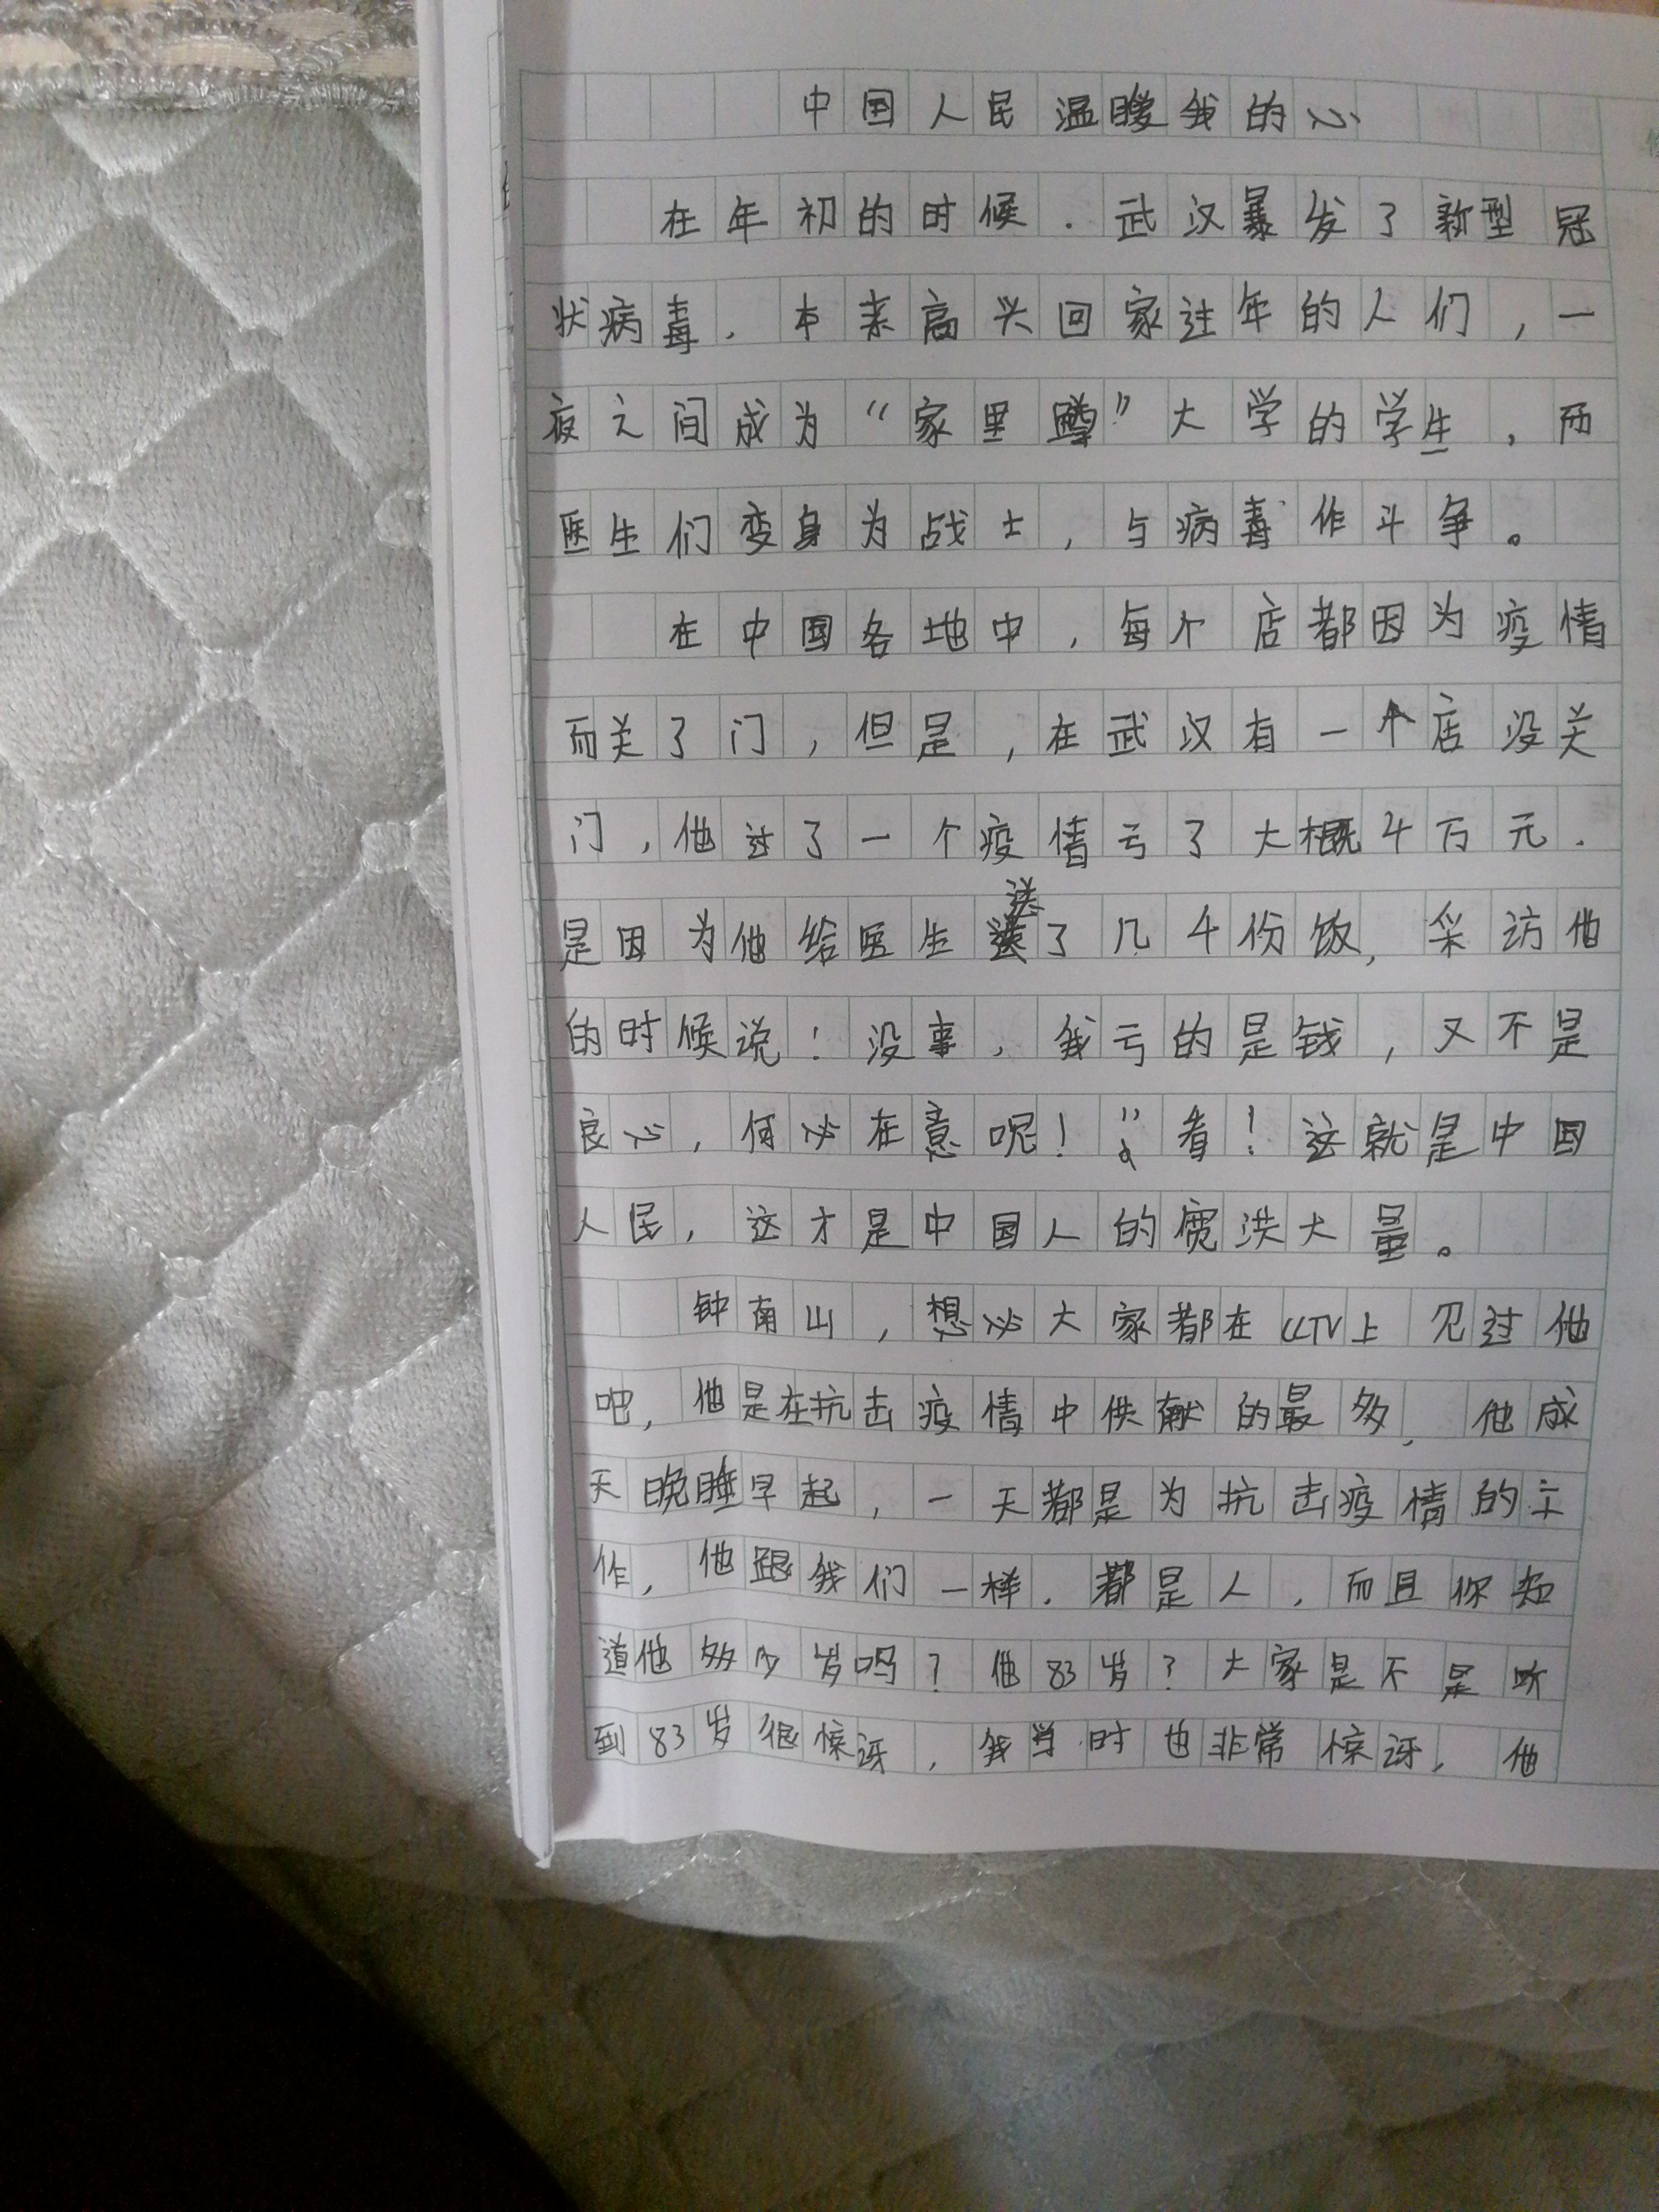 中国人民温暖我的心
在年初的时候.武汉暴发了新型冠
状病毒.本来高兴回家过年的人们,一
夜之间成为“家里蹲”大学的学生,而
医生们变身为战士,与病毒作斗争。
在中国各地中,每个店都因为疫情
而关了门,但是,在武汉有一个店没关
门,他过了一个疫情亏了大概4万元.
是因为他给医生送了几千份饭,采访他
的时候说:没事,我亏的是钱,又不是
良心,何必在意呢!”看!这就是中国
人民,这才是中国人的宽洪大量。
钟南山,想必大家都在CCTV上见过他
吧,他是在抗击疫情中供献的最多,他成
天晚睡早起,一天都是为抗击疫情的工
作,他跟我们一样.都是人,而且你知
道他多少岁吗?他83岁?大家是不是听
到83岁很惊讶,我当时也非常惊讶,他